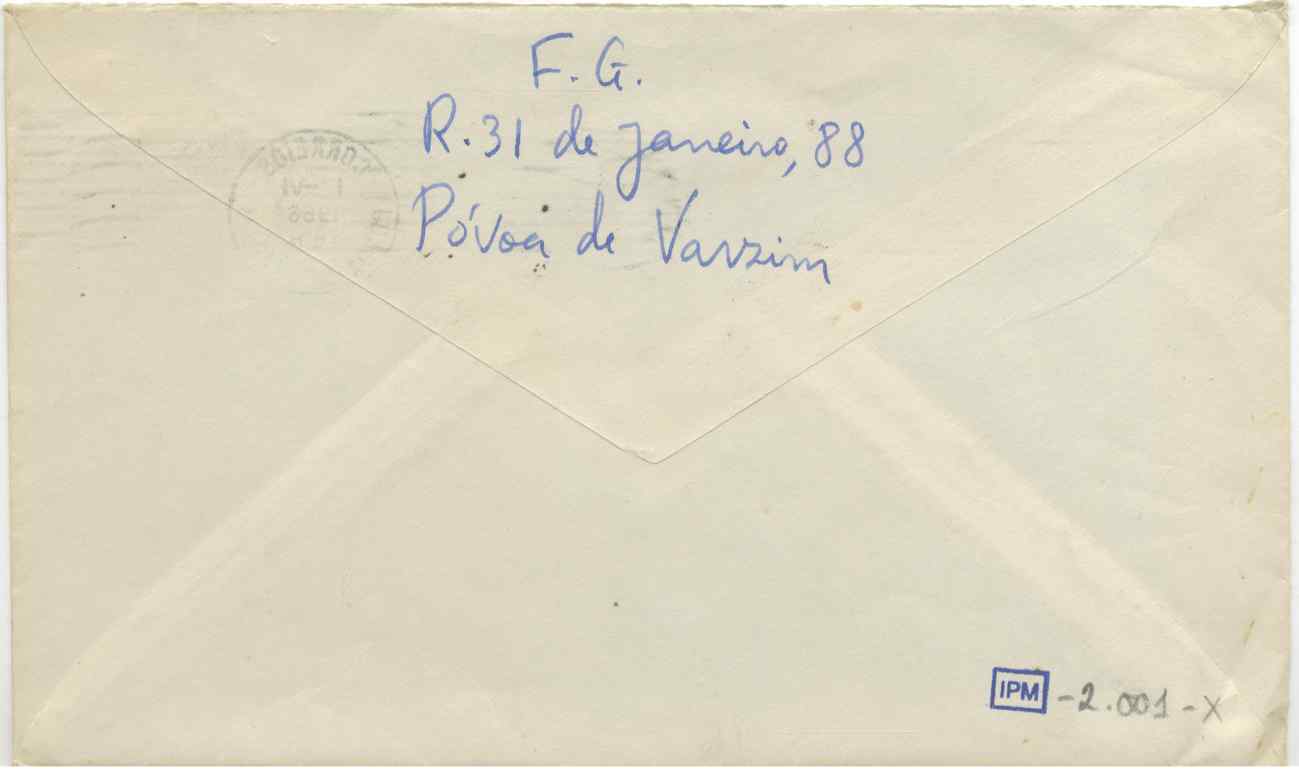 F. G.
R. 31 de Janeiro, 88
Póvoa de Varzim
CORREIOS
IPM -2.001-X